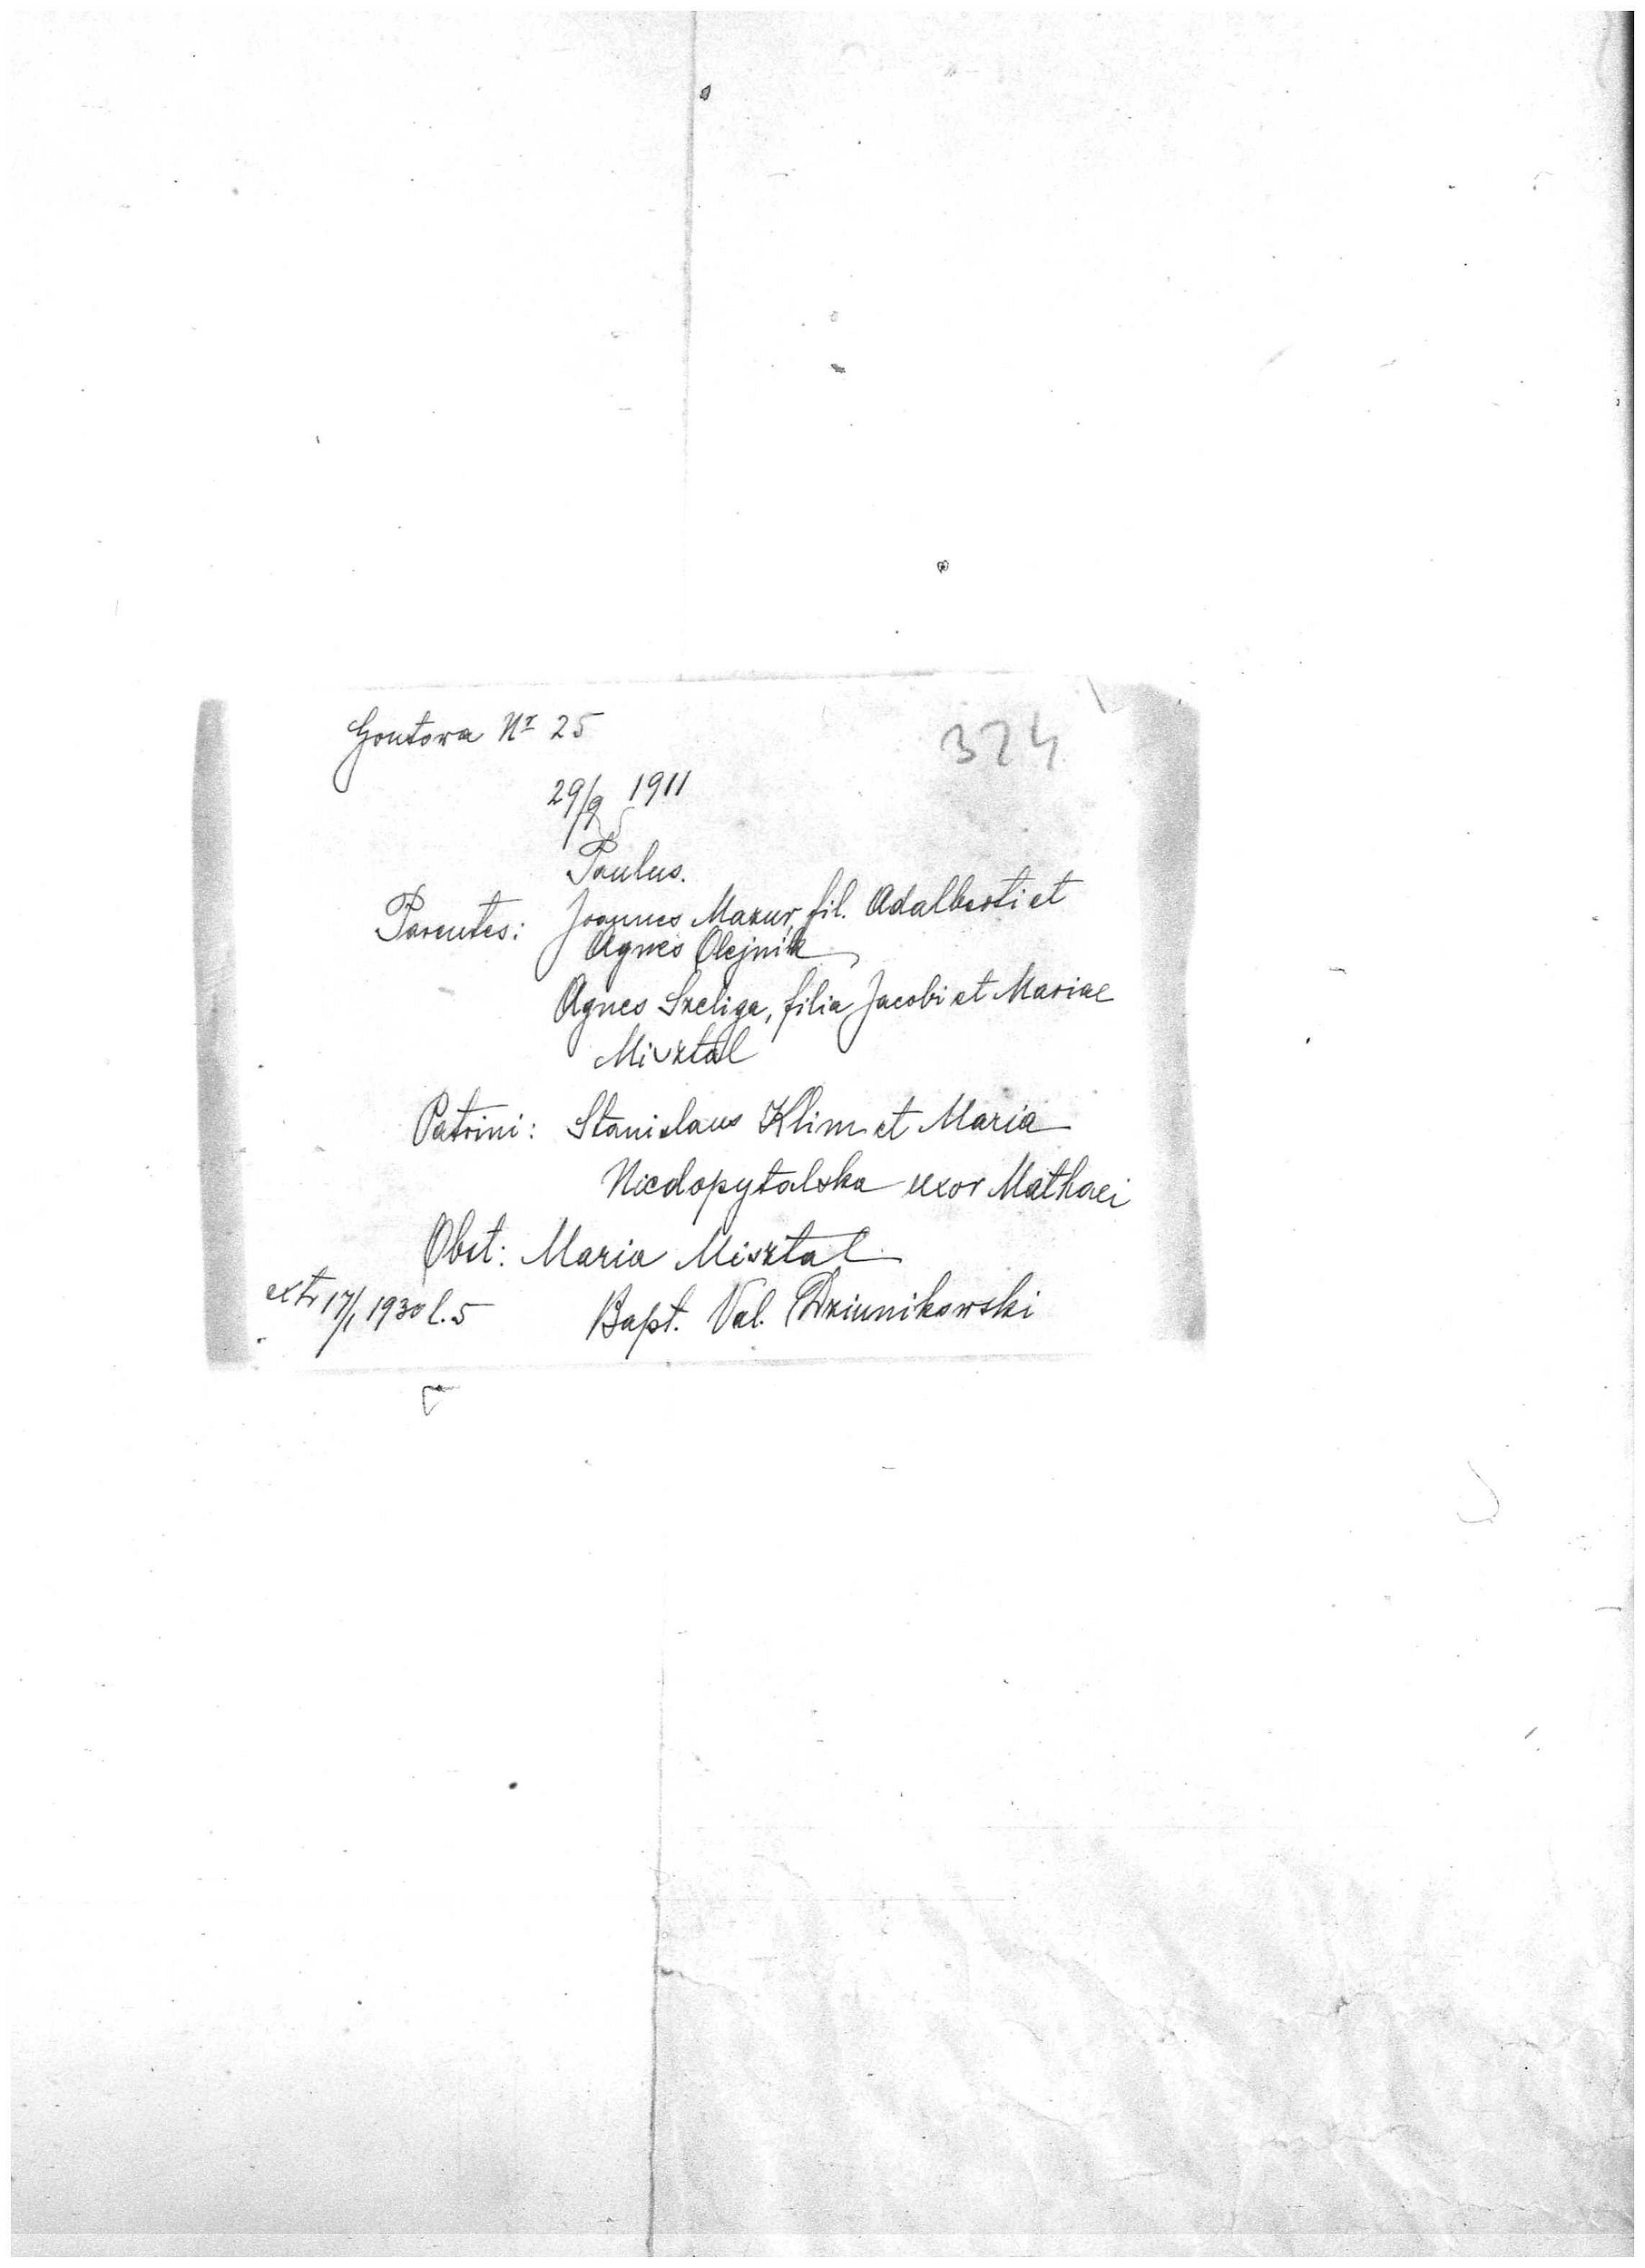 Gontowa Nr 25
324
29/9 1911
Paulus.
Parentes: Joannes Mazur, fil. Adalberti et
Agnes Olejnik
Agnes Szeliga, filia Jacobi et Mariae
Misztal
Patrini: Stanislaus Klim et Maria
Niedopytalska uxor Mathaei
Obst: Maria Misztal
extr 17/1 1930 l. 5
Bapt. Val. Dziunikowski